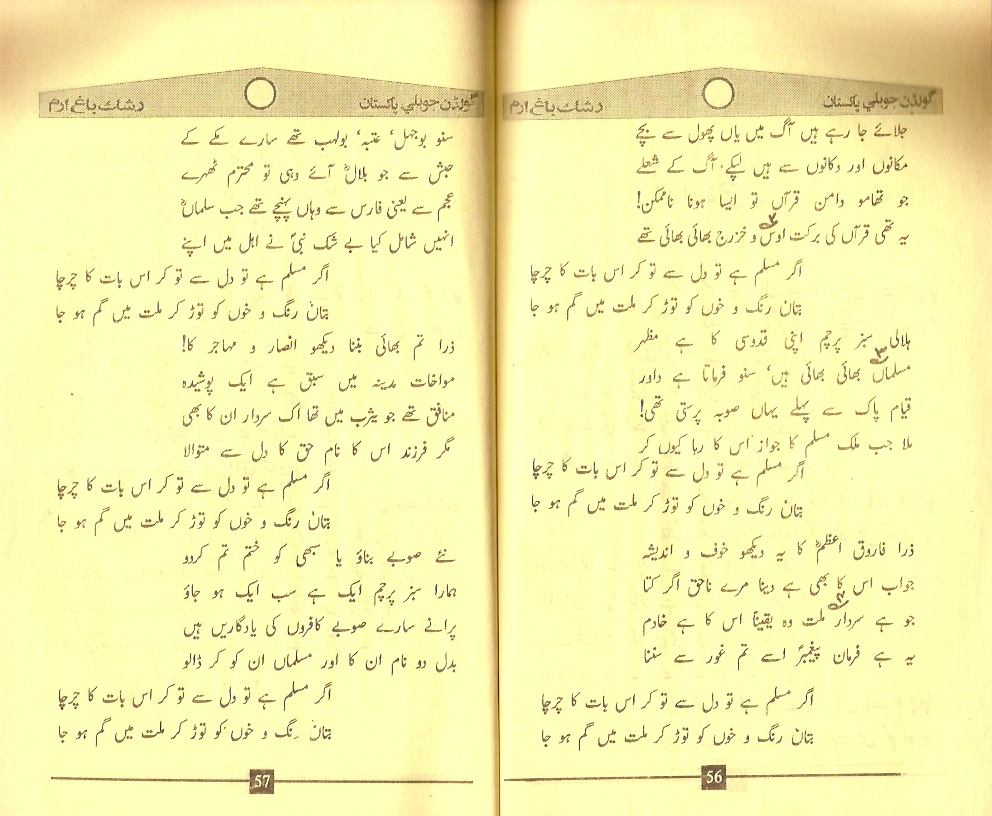 گولڈن جوبلی پاکستان
رشک باغ ارم
جلائے جا رہے ہیں آگ میں یاں پھول سے بچے
مکانوں اور دکانوں سے ہیں لپکے آگ کے شعلے
جو تھامو دامن قرآں تو ایسا ہونا ناممکن!
یہ تھی قرآں کی برکت اوس۲ و خزرج بھائی بھائی تھے
اگر مسلم ہے تو دل سے تو کر اس بات کا چرچا
بتان رنگ و خوں کو توڑ کر ملت میں گم ہو جا
ہلالی سبز پرچم اپنی قدوسی کا ہے مظہر
مسلماں۳ بھائی بھائی ہیں‘ سنو فرماتا ہے داور
قیام پاک سے پہلے یہاں صوبہ پرستی تھی!
ملا جب ملک مسلم کا جواز اس کا رہا کیوں کر
اگر مسلم ہے تو دل سے تو کر اس بات کا چرچا
بتان رنگ و خوں کو توڑ کر ملت میں گم ہو جا
ذرا فاروق اعظمؓ کا یہ دیکھو خوف و اندیشہ
جواب اس کا بھی ہے دینا مرے ناحق اگر کتا
جو ہے سردار۴ ملت وہ یقیناً اس کا ہے خادم
یہ ہے فرمان پیغمبرؐ اسے تم غور سے سننا
اگر مسلم ہے تو دل سے تو کر اس بات کا چرچا
بتان رنگ و خوں کو توڑ کر ملت میں گم ہو جا
56
گولڈن جوبلی پاکستان
رشک باغ ارم
سنو بوجہل‘ عتبہ‘ بولہب تھے سارے مکے کے
حبش سے جو بلالؓ آئے وہی تو محترم ٹھہرے
عجم سے یعنی فارس سے وہاں پہنچے تھے جب سلماںؓ
انہیں شامل کیا بے شک نبیؐ نے اہل میں اپنے
اگر مسلم ہے تو دل سے تو کر اس بات کا چرچا
بتان رنگ و خوں کو توڑ کر ملت میں گم ہو جا
ذرا تم بھائی بننا دیکھو انصار و مہاجر کا!
مواخات مدینہ میں سبق ہے ایک پوشیدہ
منافق تھے جو یثرب میں تھا اک سردار ان کا بھی
مگر فرزند اس کا نام حق کا دل سے متوالا
اگر مسلم ہے تو دل سے تو کر اس بات کا چرچا
بتان رنگ و خوں کو توڑ کر ملت میں گم ہو جا
نئے صوبے بناؤ یا سبھی کو ختم تم کردو
ہمارا سبز پرچم ایک ہے سب ایک ہو جاؤ
پرانے سارے صوبے کافروں کی یادگاریں ہیں
بدل دو نام ان کا اور مسلماں ان کو کر ڈالو
اگر مسلم ہے تو دل سے تو کر اس بات کا چرچا
بتان رنگ و خوں کو توڑ کر ملت میں گم ہو جا
57